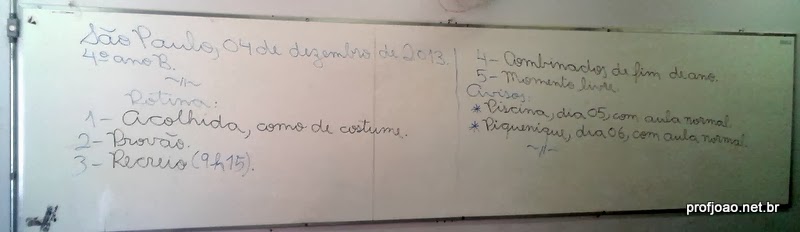 São Paulo, 04 de dezembro de 2013.
4º ano B.
~//~
Rotina:
1- Acolhida, como de costume.
2- Provão.
3- Recreio (9h15).
4- Combinados de fim de ano.
5- Momento livre.
Avisos:
* Piscina, dia 05, com aula normal.
* Piquenique, dia 06, com aula normal.
~//~
profjoao.net.br